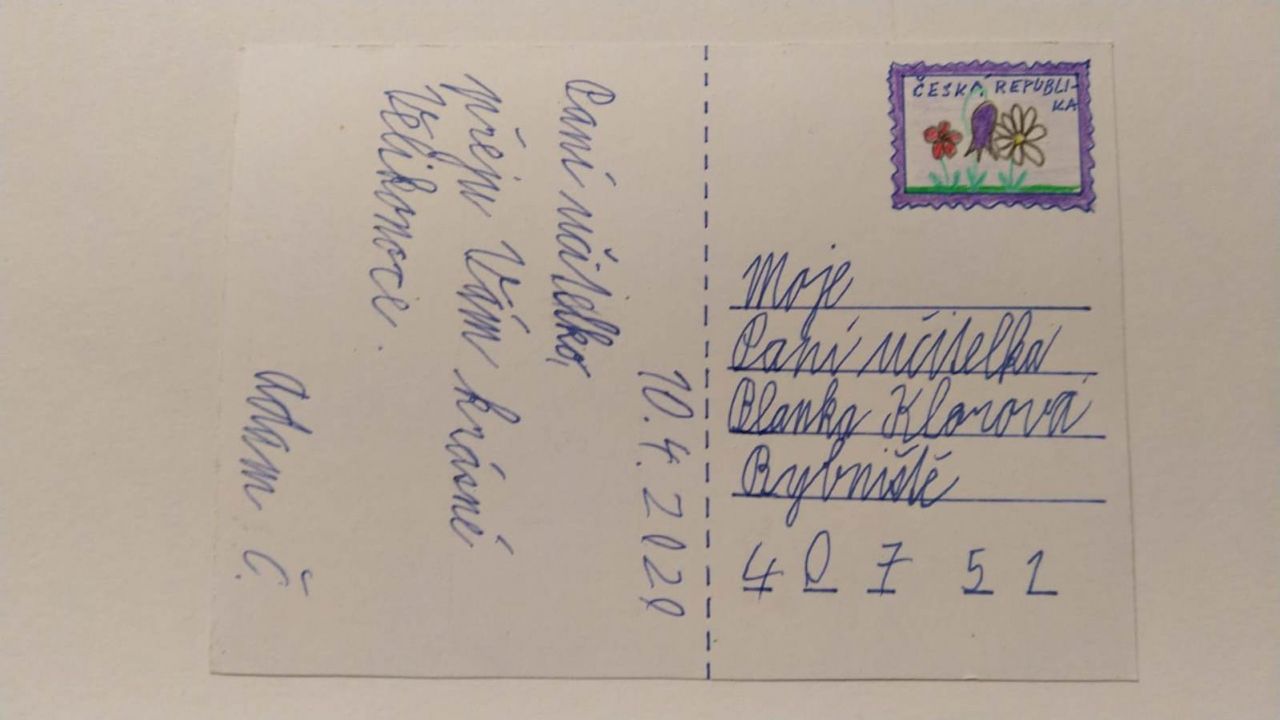 10.4.2020
Paní učitelko,
přeju Vám krásné
Velikonoce.
Adam Č.
ČESKÁ REPUBLI-
KA
Moje
Paní učitelka
Blanka Klorová
Rybniště
407 51